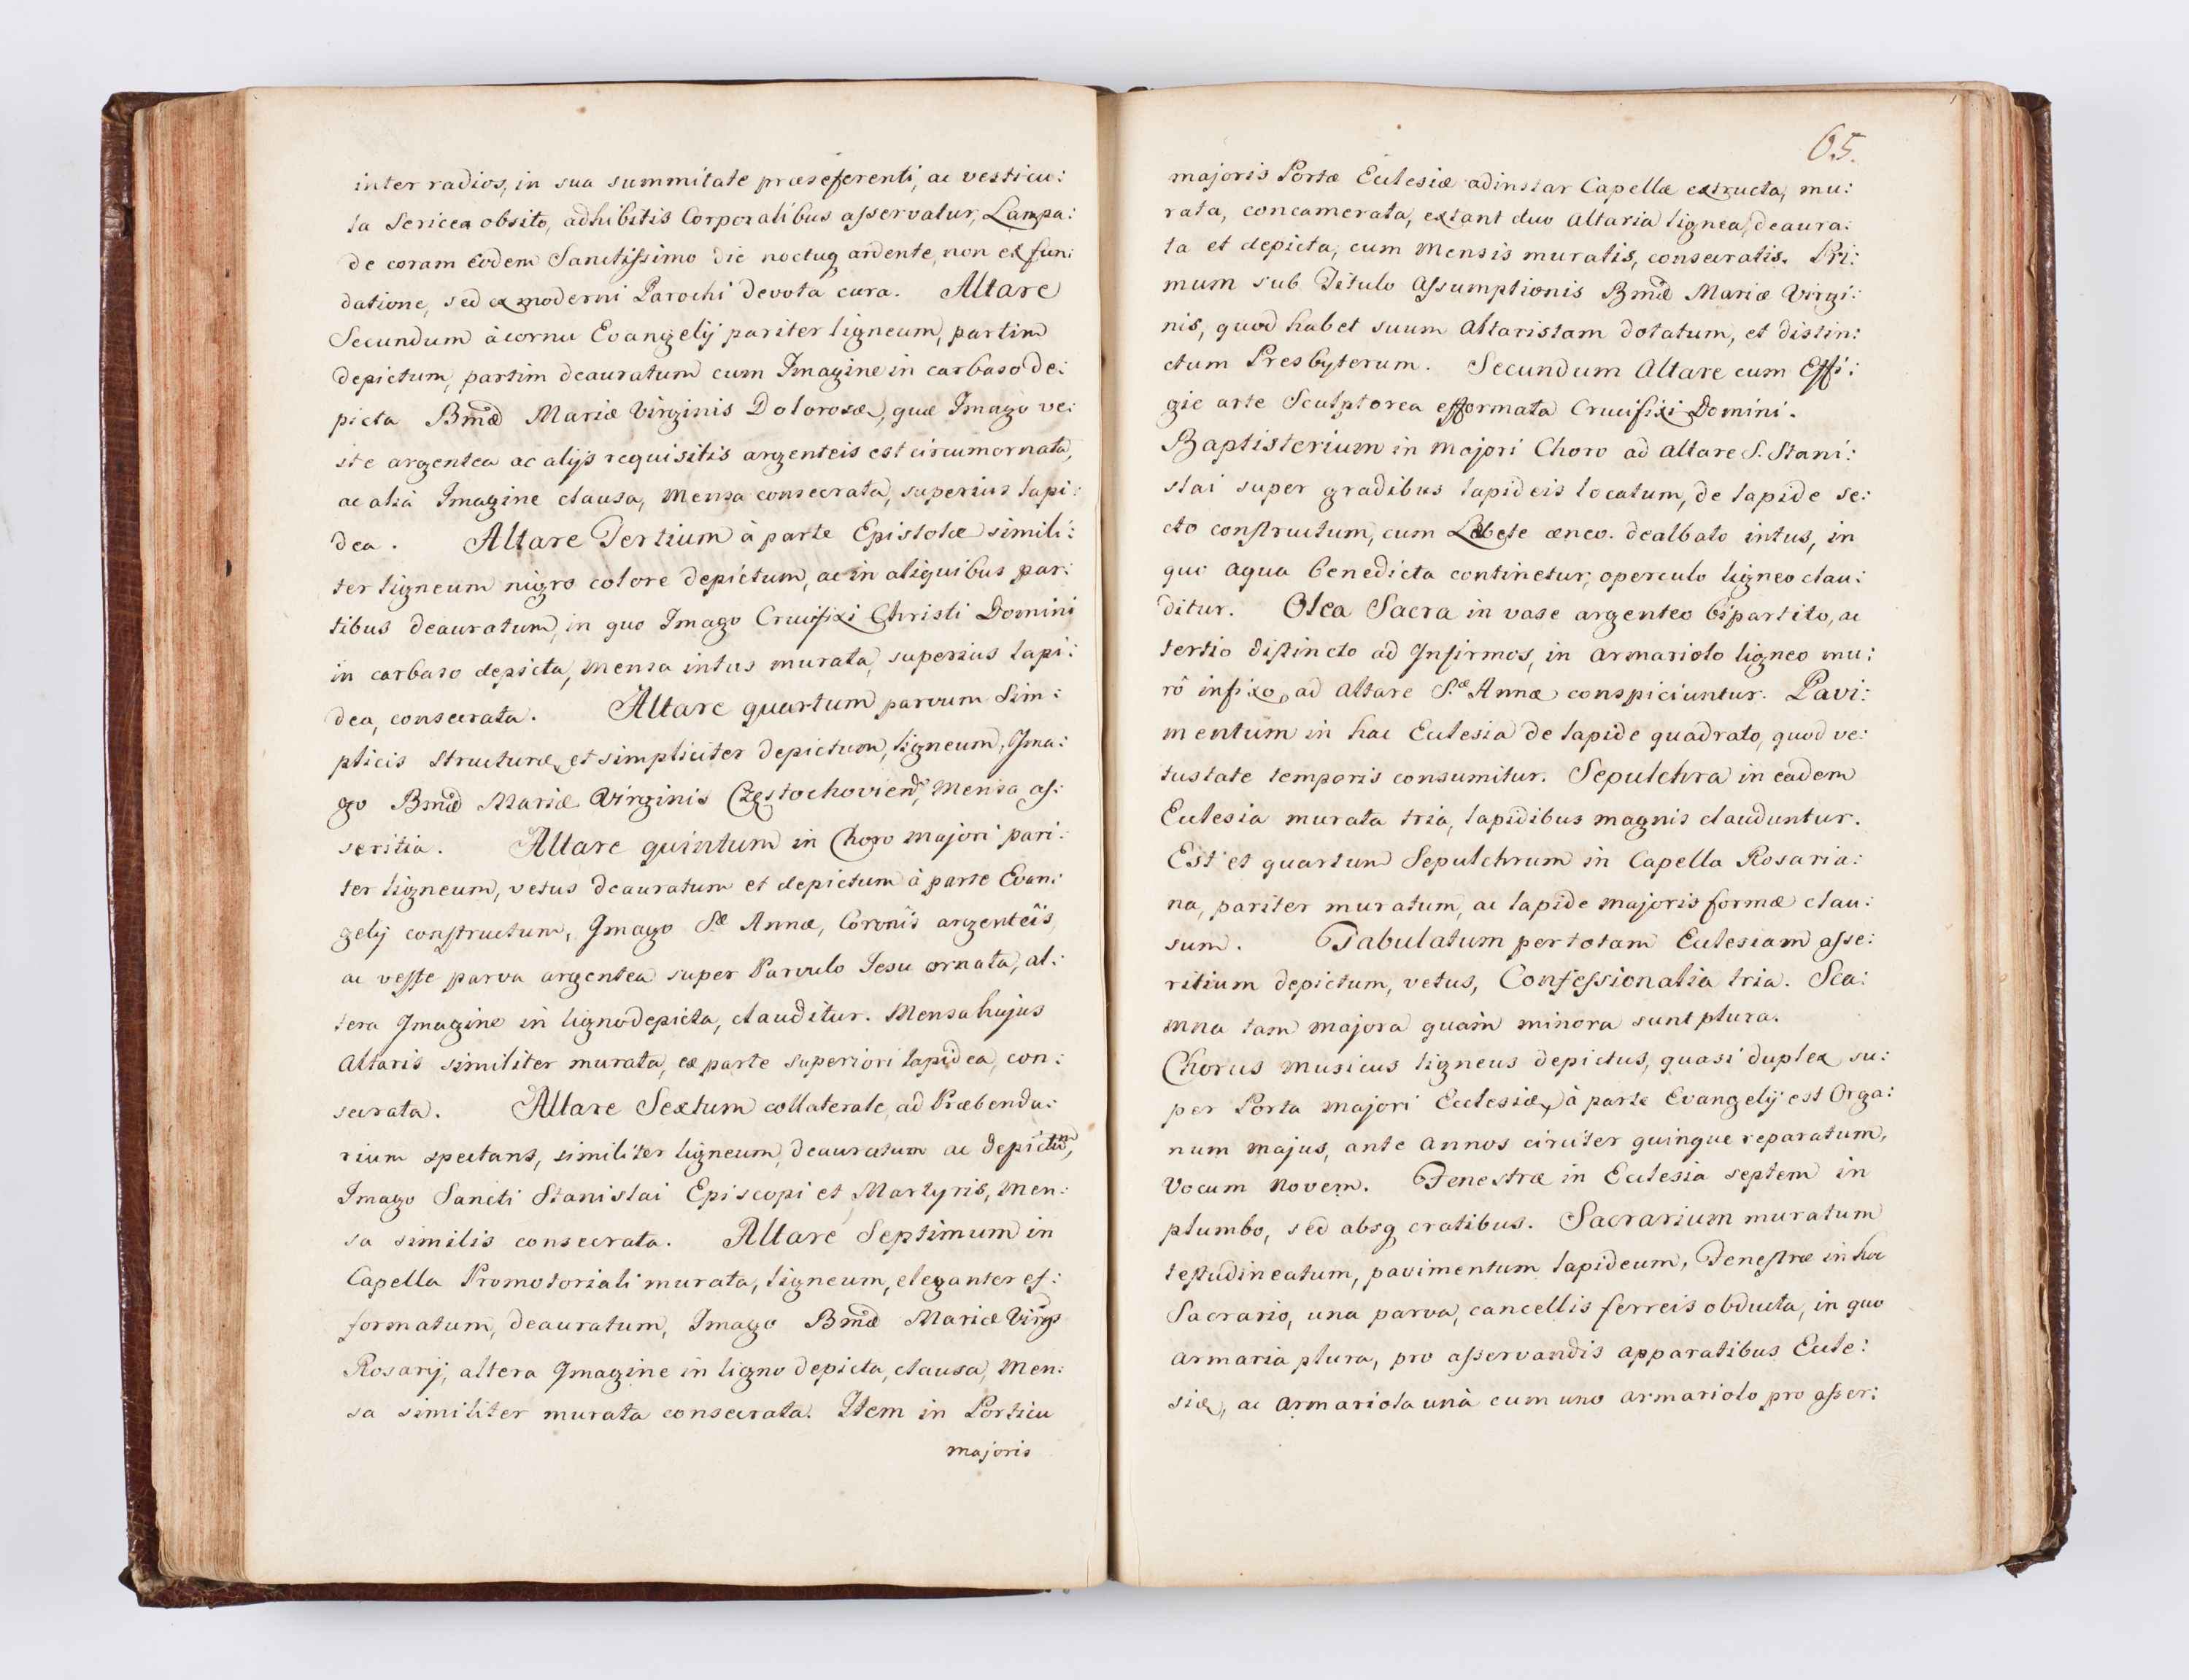 inter radios, in sua summitate præseferenti, ac vesticu:
la Sericea obsito, adhibitis Corporalibus asservatur, Lampa:
de coram eodem Sanctissimo die noctuq ardente, non ex fun:
datione, sed ex moderni Parochi devota cura. Altare
Secundum à cornu Evangelij pariter ligneum, partim
depictum, partim deauratum cum Imagine in carbaso de:
picta Bmæ Mariæ Virginis Dolorosæ, quæ Imago ve:
ste argentea ac alijs requisitis argenteis est circumornata,
ac aliâ Imagine clausa, Mensa consecrata, superius lapi:
dea. Altare Tertium à parte Epistolæ simili:
ter ligneum nigro colore depictum, ac in aliquibus par:
tibus deauratum, in quo Imago Crucifixi Christi Domini
in carbaso depicta, Mensa intus murata, superius lapi:
dea, consecrata. Altare quartum parvum Sim:
plicis structuræ, et simpliciter depictum, ligneum, Ima:
go Bmæ Mariæ Virginis Częstochovien, Mensa as:
seritia. Altare quintum in Choro majori pari:
ter ligneum, vetus deauratum et depictum à parte Evan:
gelij constructum, Imago Sæ Annæ, Coronis argenteis,
ac veste parva argentea super Parvulo Jesu ornata, al:
tera Imagine in ligno depicta, clauditur. Mensa hujus
Altaris similiter murata, ex parte superiori lapidea, con:
secrata. Altare Sextum collaterale, ad Præbenda:
rium spectans, similiter ligneum, deauratum ac depictum,
Imago Sancti Stanislai Episcopi et Martyris, Men:
sa similis consecrata. Altare Septimum in
Capella Promotoriali murata, ligneum, eleganter ef:
formatum, deauratum, Imago Bmæ Mariæ Virgs
Rosarij, altera Imagine in ligno depicta, clausa, Men:
sa similiter murata consecrata. Item in Porticu
majoris
65.
majoris Portæ Ecclesiæ adinstar Capellæ extructa, mu:
rata, concamerata, extant duo Altaria lignea, deaura:
ta et depicta, cum Mensis muratis, consecratis. Pri:
mum sub Titulo Assumptionis Bmæ Mariæ Virgi:
nis, quod habet suum Altaristam dotatum, et distin:
ctum Presbyterum. Secundum Altare cum Effi:
gie arte Sculptorea efformata Crucifixi Domini.
Baptisterium in Majori Choro ad Altare S. Stani:
slai super gradibus lapideis locatum, de lapide se:
cto constructum, cum Lebete æneo. dealbato intus, in
quo Aqua benedicta continetur, operculo ligneo clau:
ditur. Olea Sacra in vase argenteo bipartito, ac
tertio distincto ad Infirmos, in Armariolo ligneo mu:
rô infixo, ad Altare S.æ Annæ conspiciuntur. Pavi:
mentum in hac Ecclesia de lapide quadrato, quod ve:
tustate temporis consumitur. Sepulchra in eadem
Ecclesia murata tria, lapidibus magnis clauduntur.
Est et quartum Sepulchrum in Capella Rosaria:
na, pariter muratum, ac lapide majoris formæ clau:
sum. Tabulatum per totam Ecclesiam asse:
ritium depictum, vetus, Confessionalia tria. Sca:
mna tam majora quàm minora sunt plura.
Chorus musicus ligneus depictus, quasi duplex su:
per Porta majori Ecclesiæ, à parte Evangelij est Orga:
num majus, ante Annos circiter quinque reparatum,
Vocum Novem. Fenestræ in Ecclesia septem in
plumbo, sed absq cratibus. Sacrarium muratum
testudineatum, pavimentum lapideum, Fenestræ in hoc
Sacrario, una parva, cancellis ferreis obducta, in quo
Armaria plura, pro asservandis apparatibus Eccle:
siæ, ac Armariola unà cum uno Armariolo pro asser: